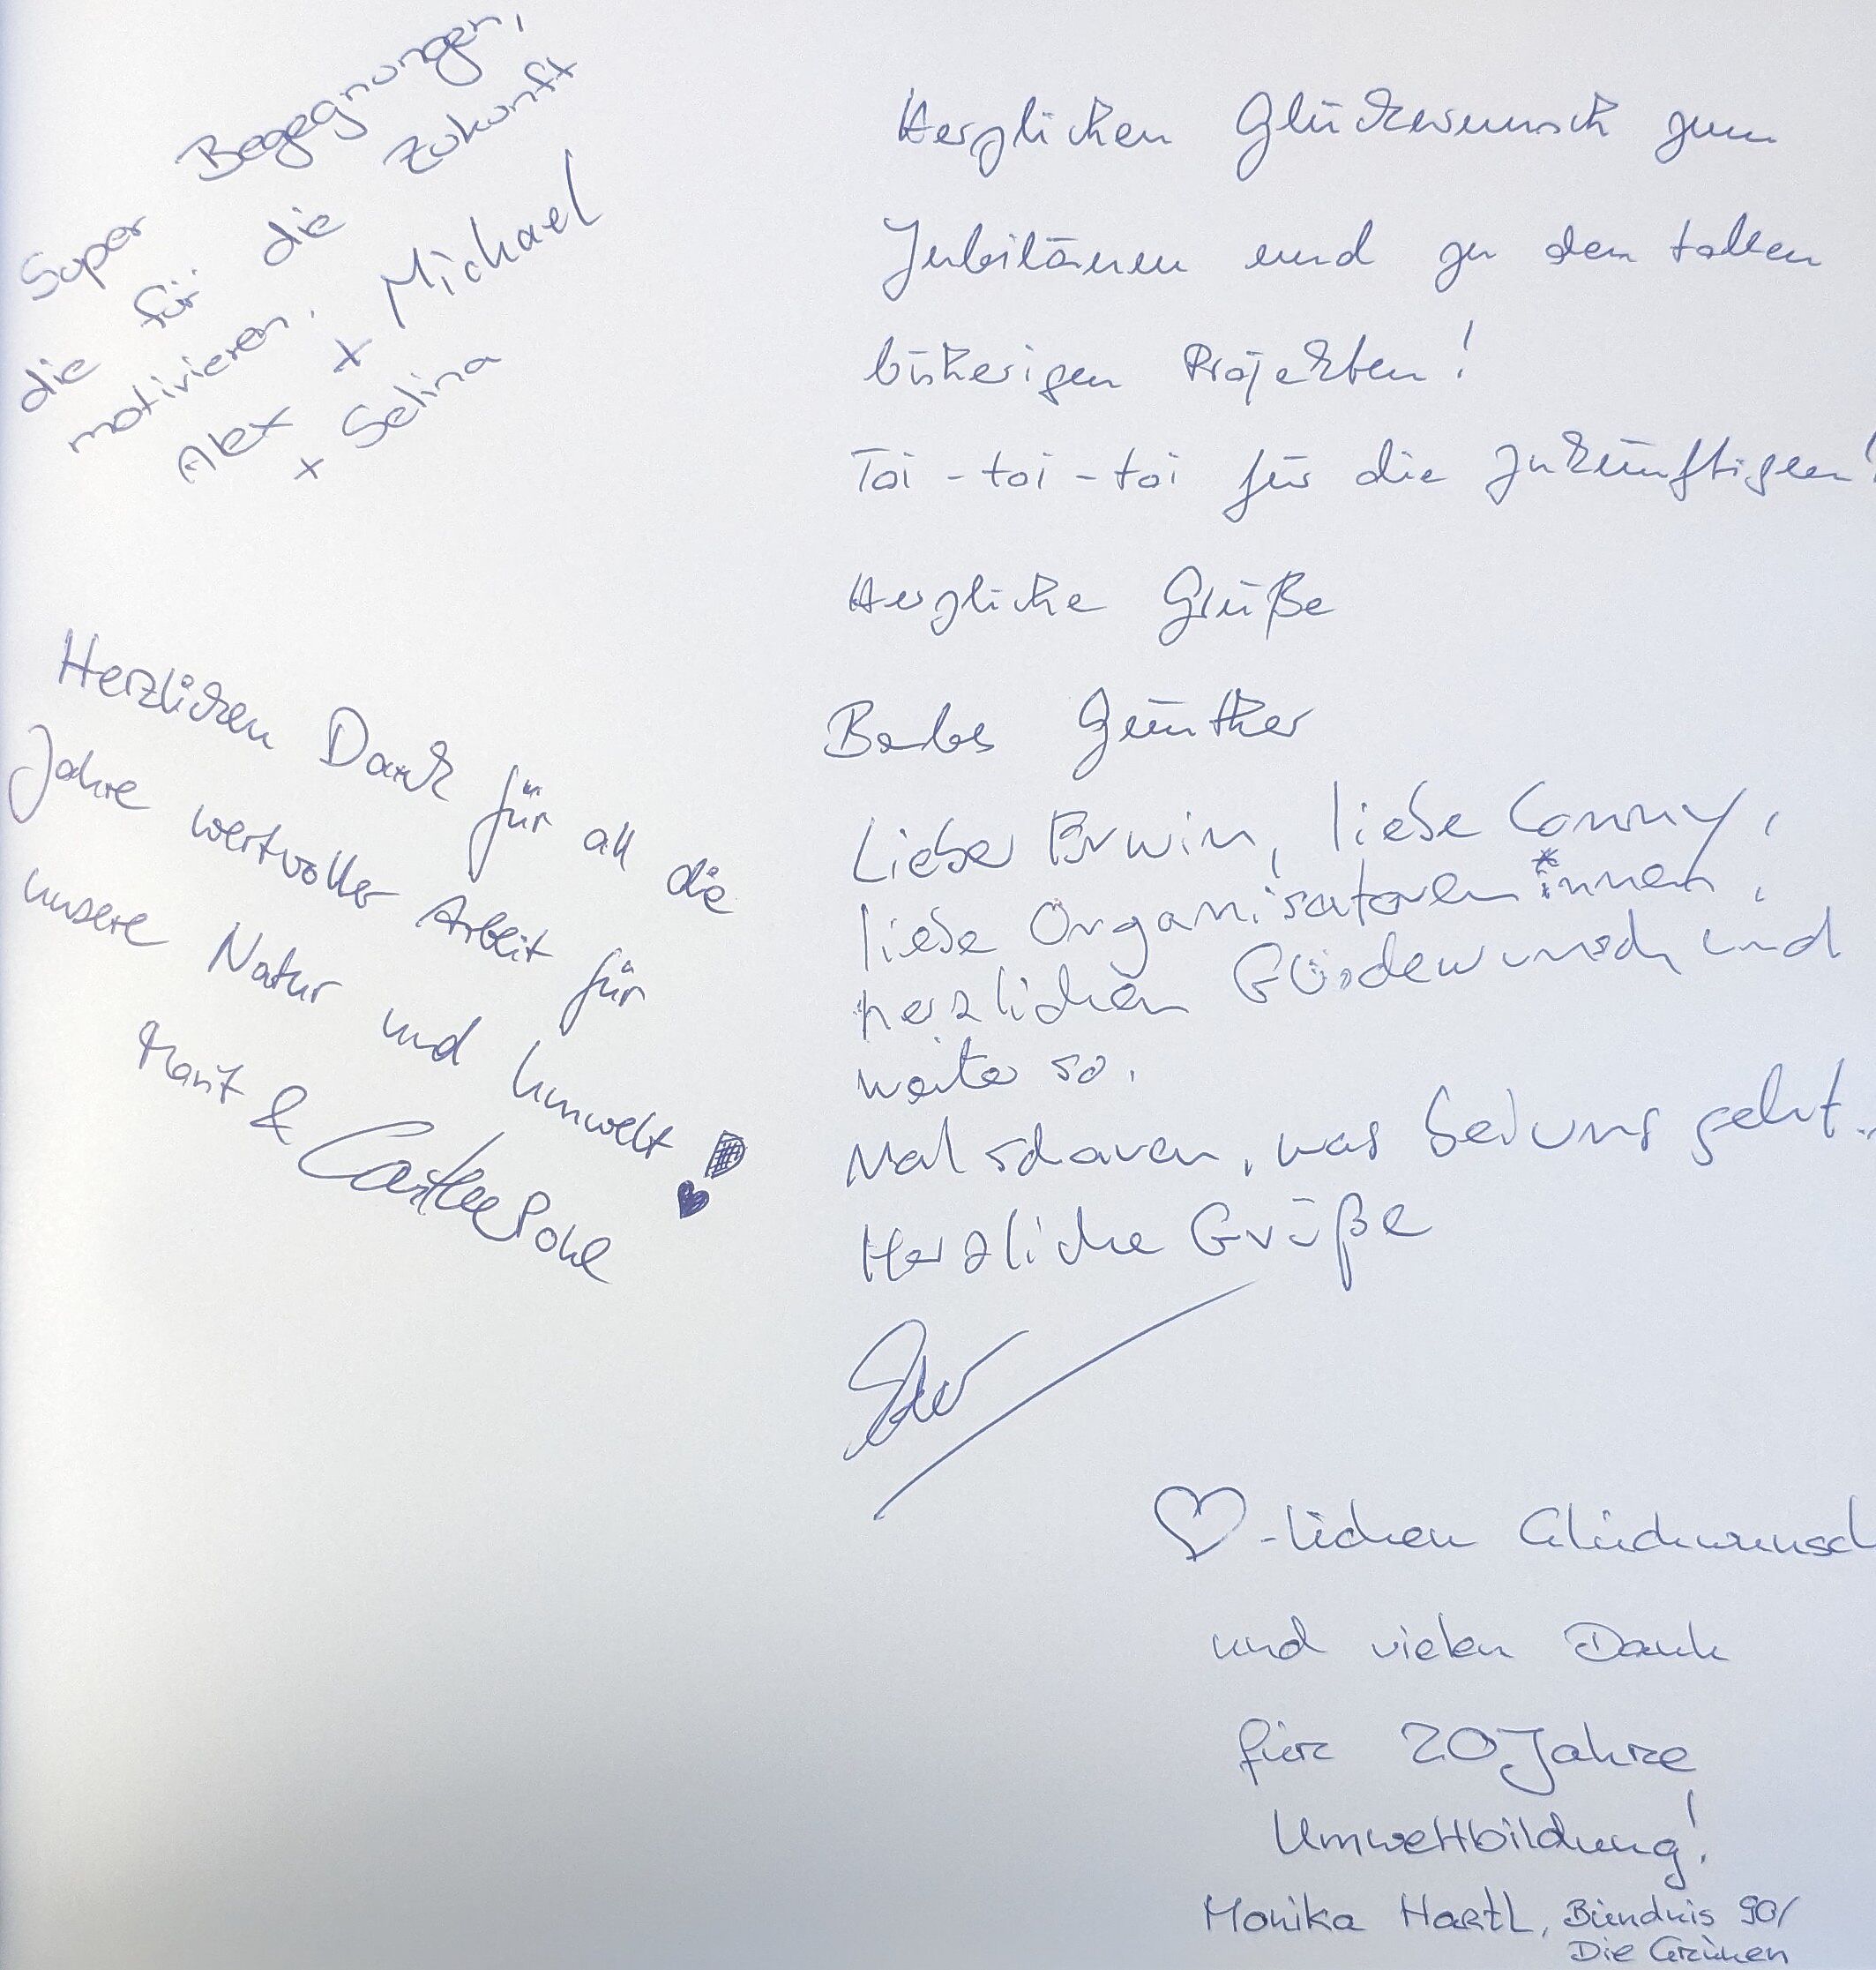 Super Begegnungen,
die für die Zukunft
motivieren.
Alex + Michael
+ Selina
Herzlichen Dank für all die
Jahre wertvoller Arbeit für
unsere Natur und Umwelt
Pohl
Herzlichen Glückwunsch zum
Jubiläum und zu den tollen
bisherigen Projekten!
Toi-toi-toi für die zukünftigen!
Herzliche Grüße
Babs Günther
Lieber Erwin, liebe Conny,
liebe Organisatoren*innen,
herzlichen Glückwunsch und
weiter so.
Mal schauen, was bei uns geht..
Herzliche Grüße
-lichen Glückwunsch
und vielen Dank
für 20 Jahre
Umweltbildung!
Monika Hartl, Bündnis 90/
Die Grünen